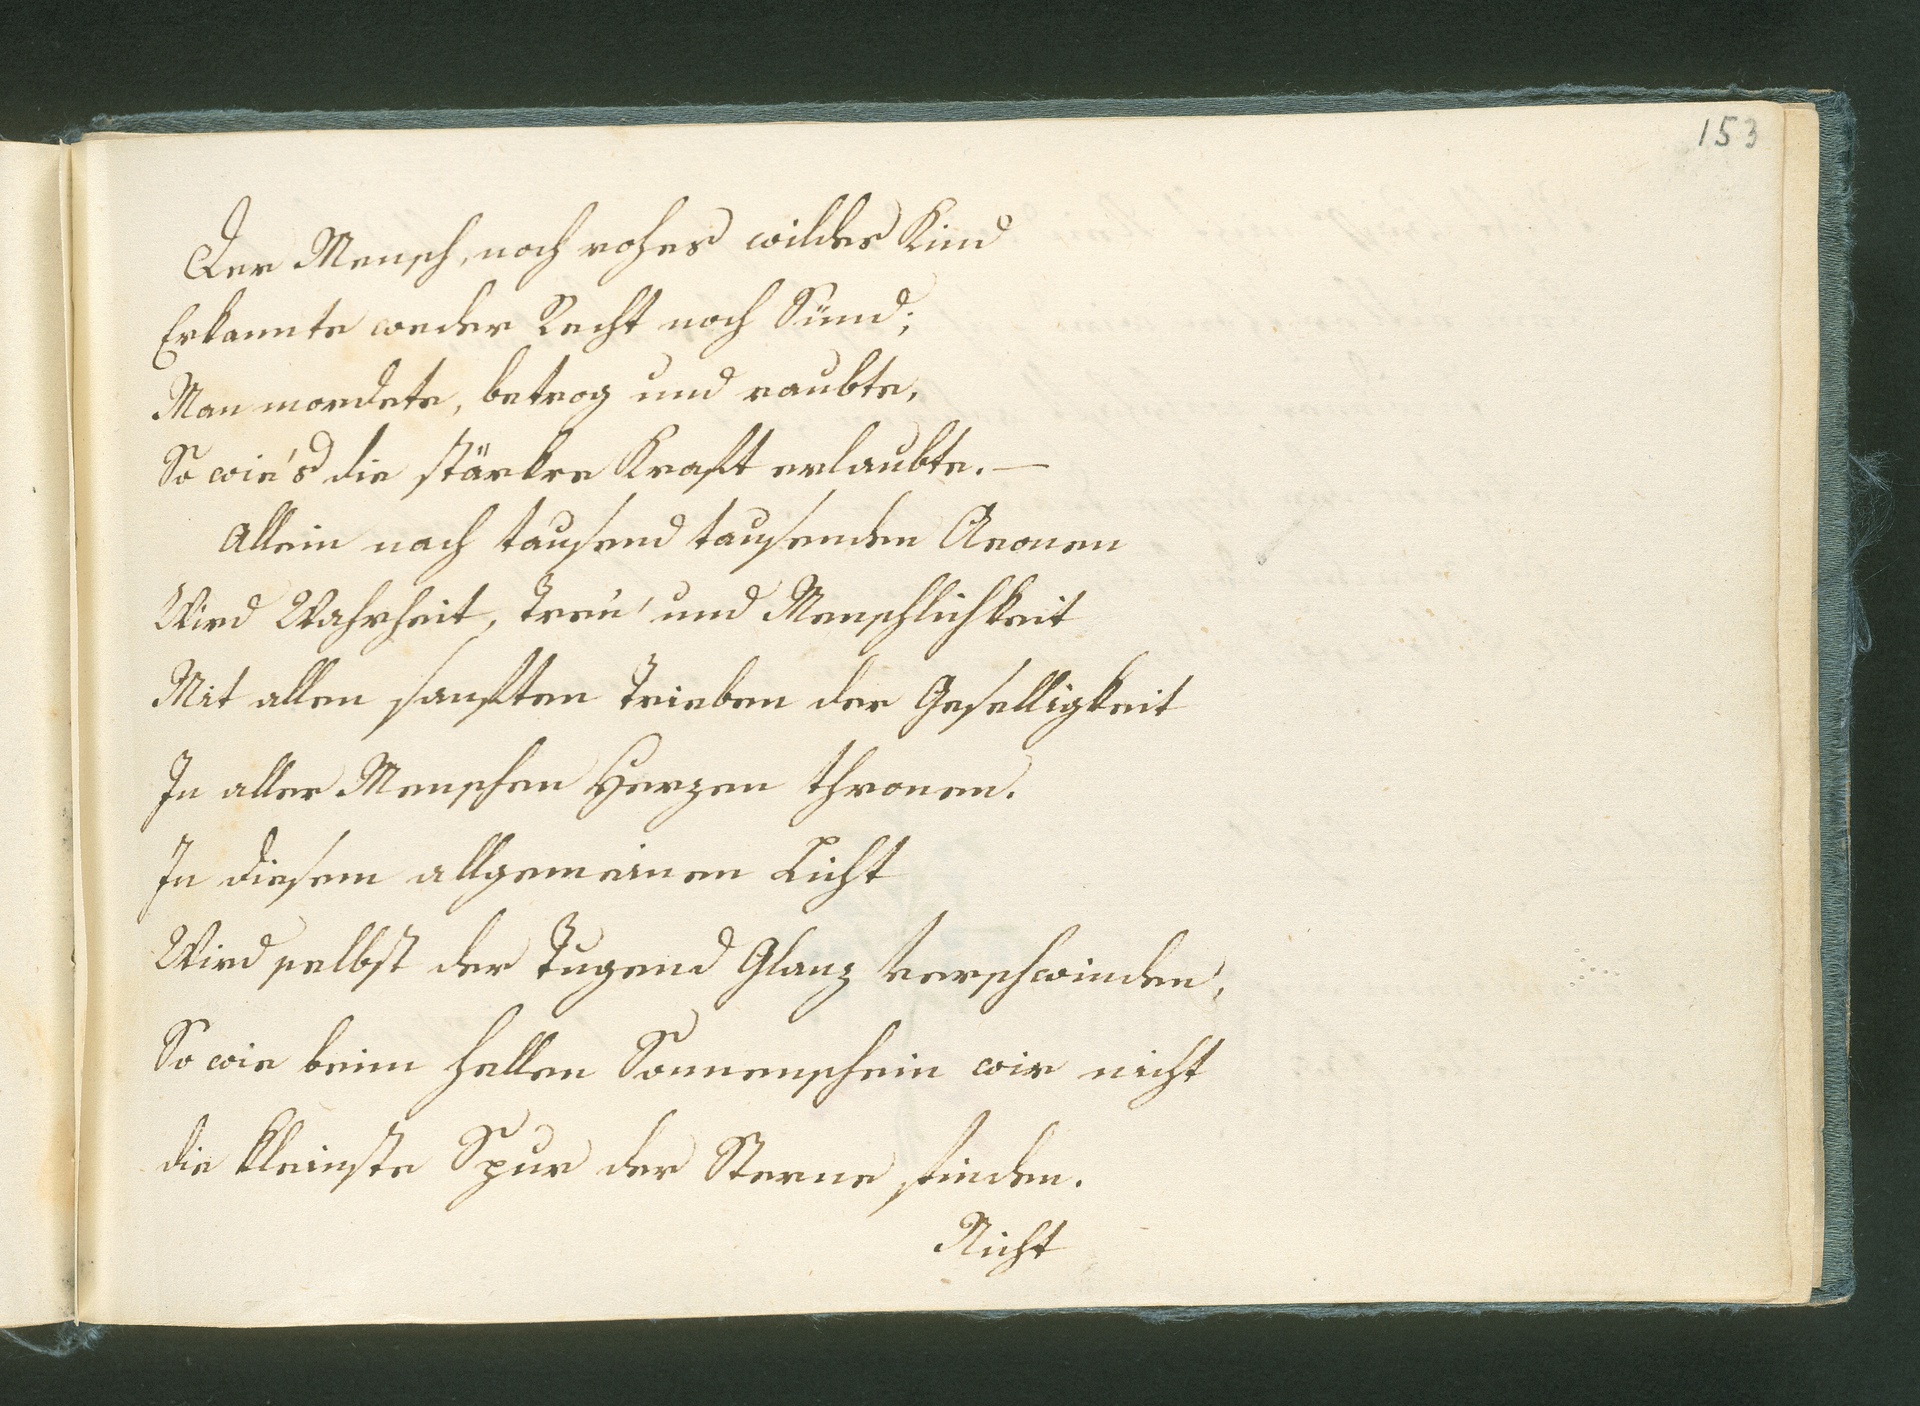 153
Der Mensch, noch rohes wildes Kind
Erkannte weder Recht noch Sünd;
Man mordete, betrog und raubte,
So wie's die stärkre Kraft erlaubte. —
Allein nach tausend tausenden Aeonen
Wird Wahrheit, Treu' und Menschlichkeit
Mit allen sanften Trieben der Geselligkeit
In aller Menschen Herzen thronen.
In diesem allgemeinen Licht
Wird selbst der Tugend Glanz verschwinden,
So wie beim hellen Sonnenschein wir nicht
die kleinste Spur der Sterne finden.
Nicht